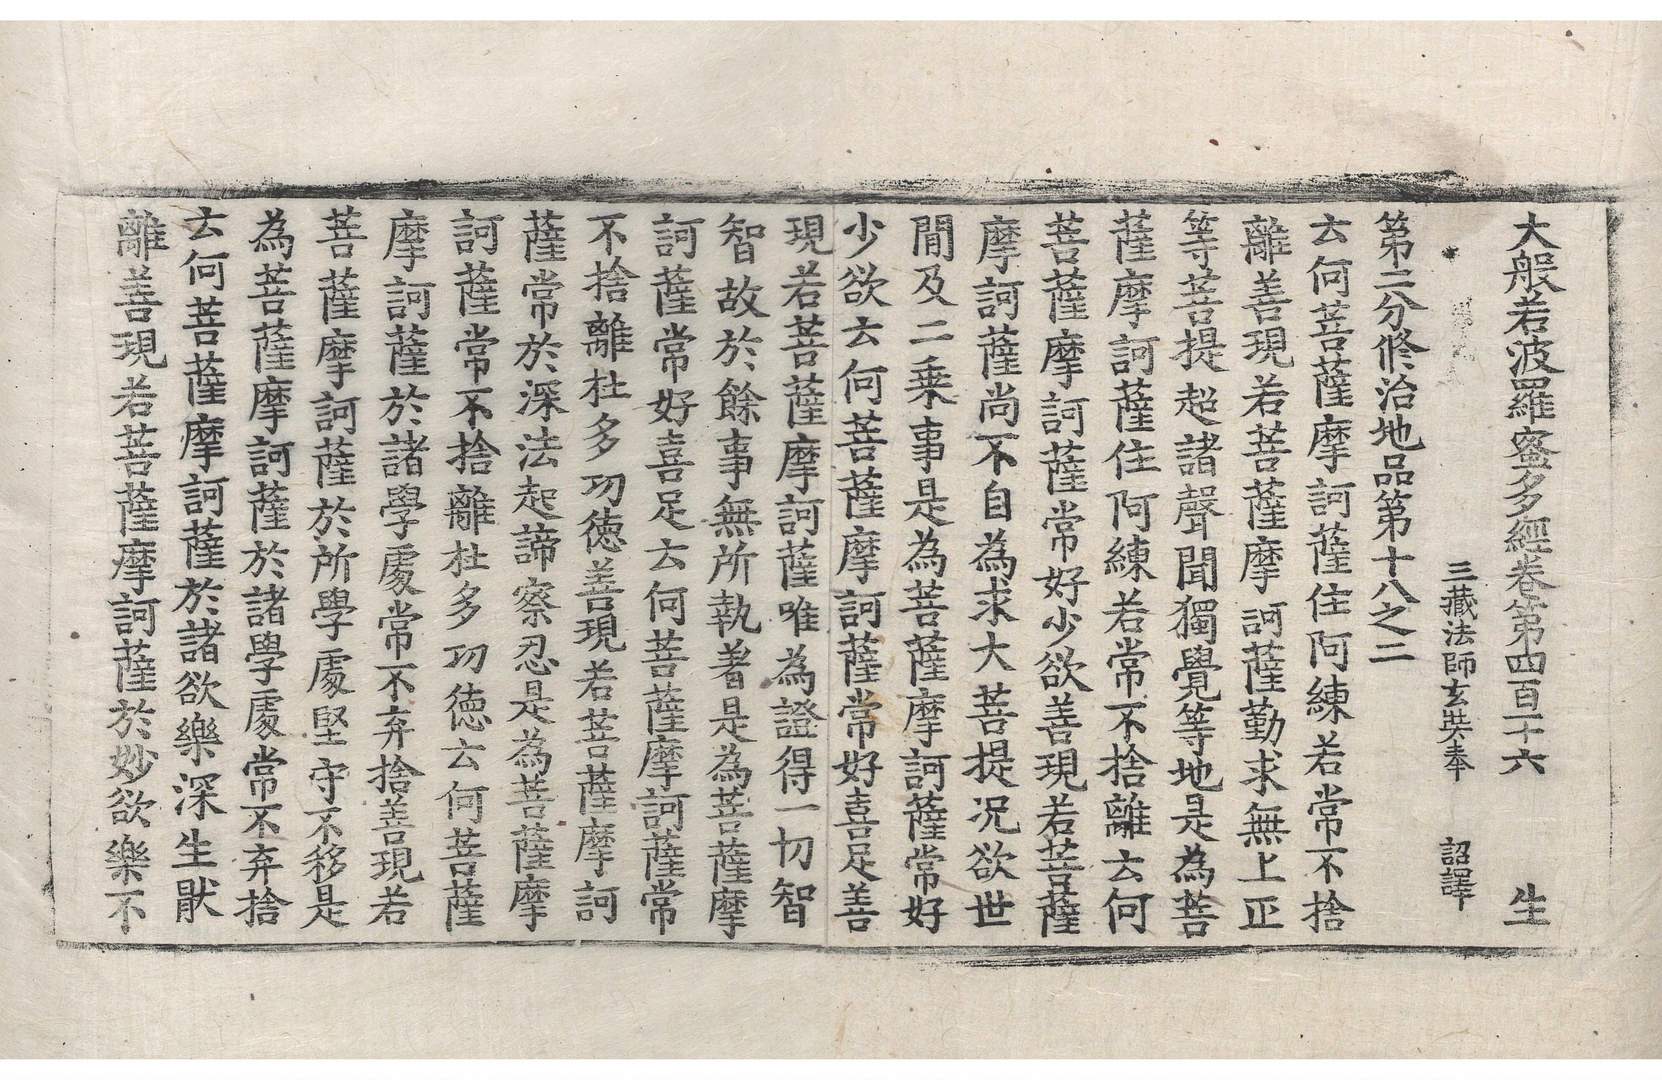 大般若波羅蜜多經卷第四百一十六　生
三藏法師玄奘奉　詔譯
第二分修治地品第十八之二
云何菩薩摩訶薩住阿練若常不捨
離善現若菩薩摩訶薩勤求無上正
等菩提超諸聲聞獨覺等地是為菩
薩摩訶薩住阿練若常不捨離云何
菩薩摩訶薩常好少欲善現若菩薩
摩訶薩尚不自為求大菩提況欲世
間及二乘事是為菩薩摩訶薩常好
少欲云何菩薩摩訶薩常好喜足善
現若菩薩摩訶薩唯為證得一切智
智故於餘事無所執著是為菩薩摩
訶薩常好喜足云何菩薩摩訶薩常
不捨離杜多功德善現若菩薩摩訶
薩常於深法起諦察忍是為菩薩摩
訶薩常不捨離杜多功德云何菩薩
摩訶薩於諸學處常不弃捨善現若
菩薩摩訶薩於所學處堅守不移是
為菩薩摩訶薩於諸學處常不弃捨
云何菩薩摩訶薩於諸欲樂深生猒
離善現若菩薩摩訶薩於妙欲樂不